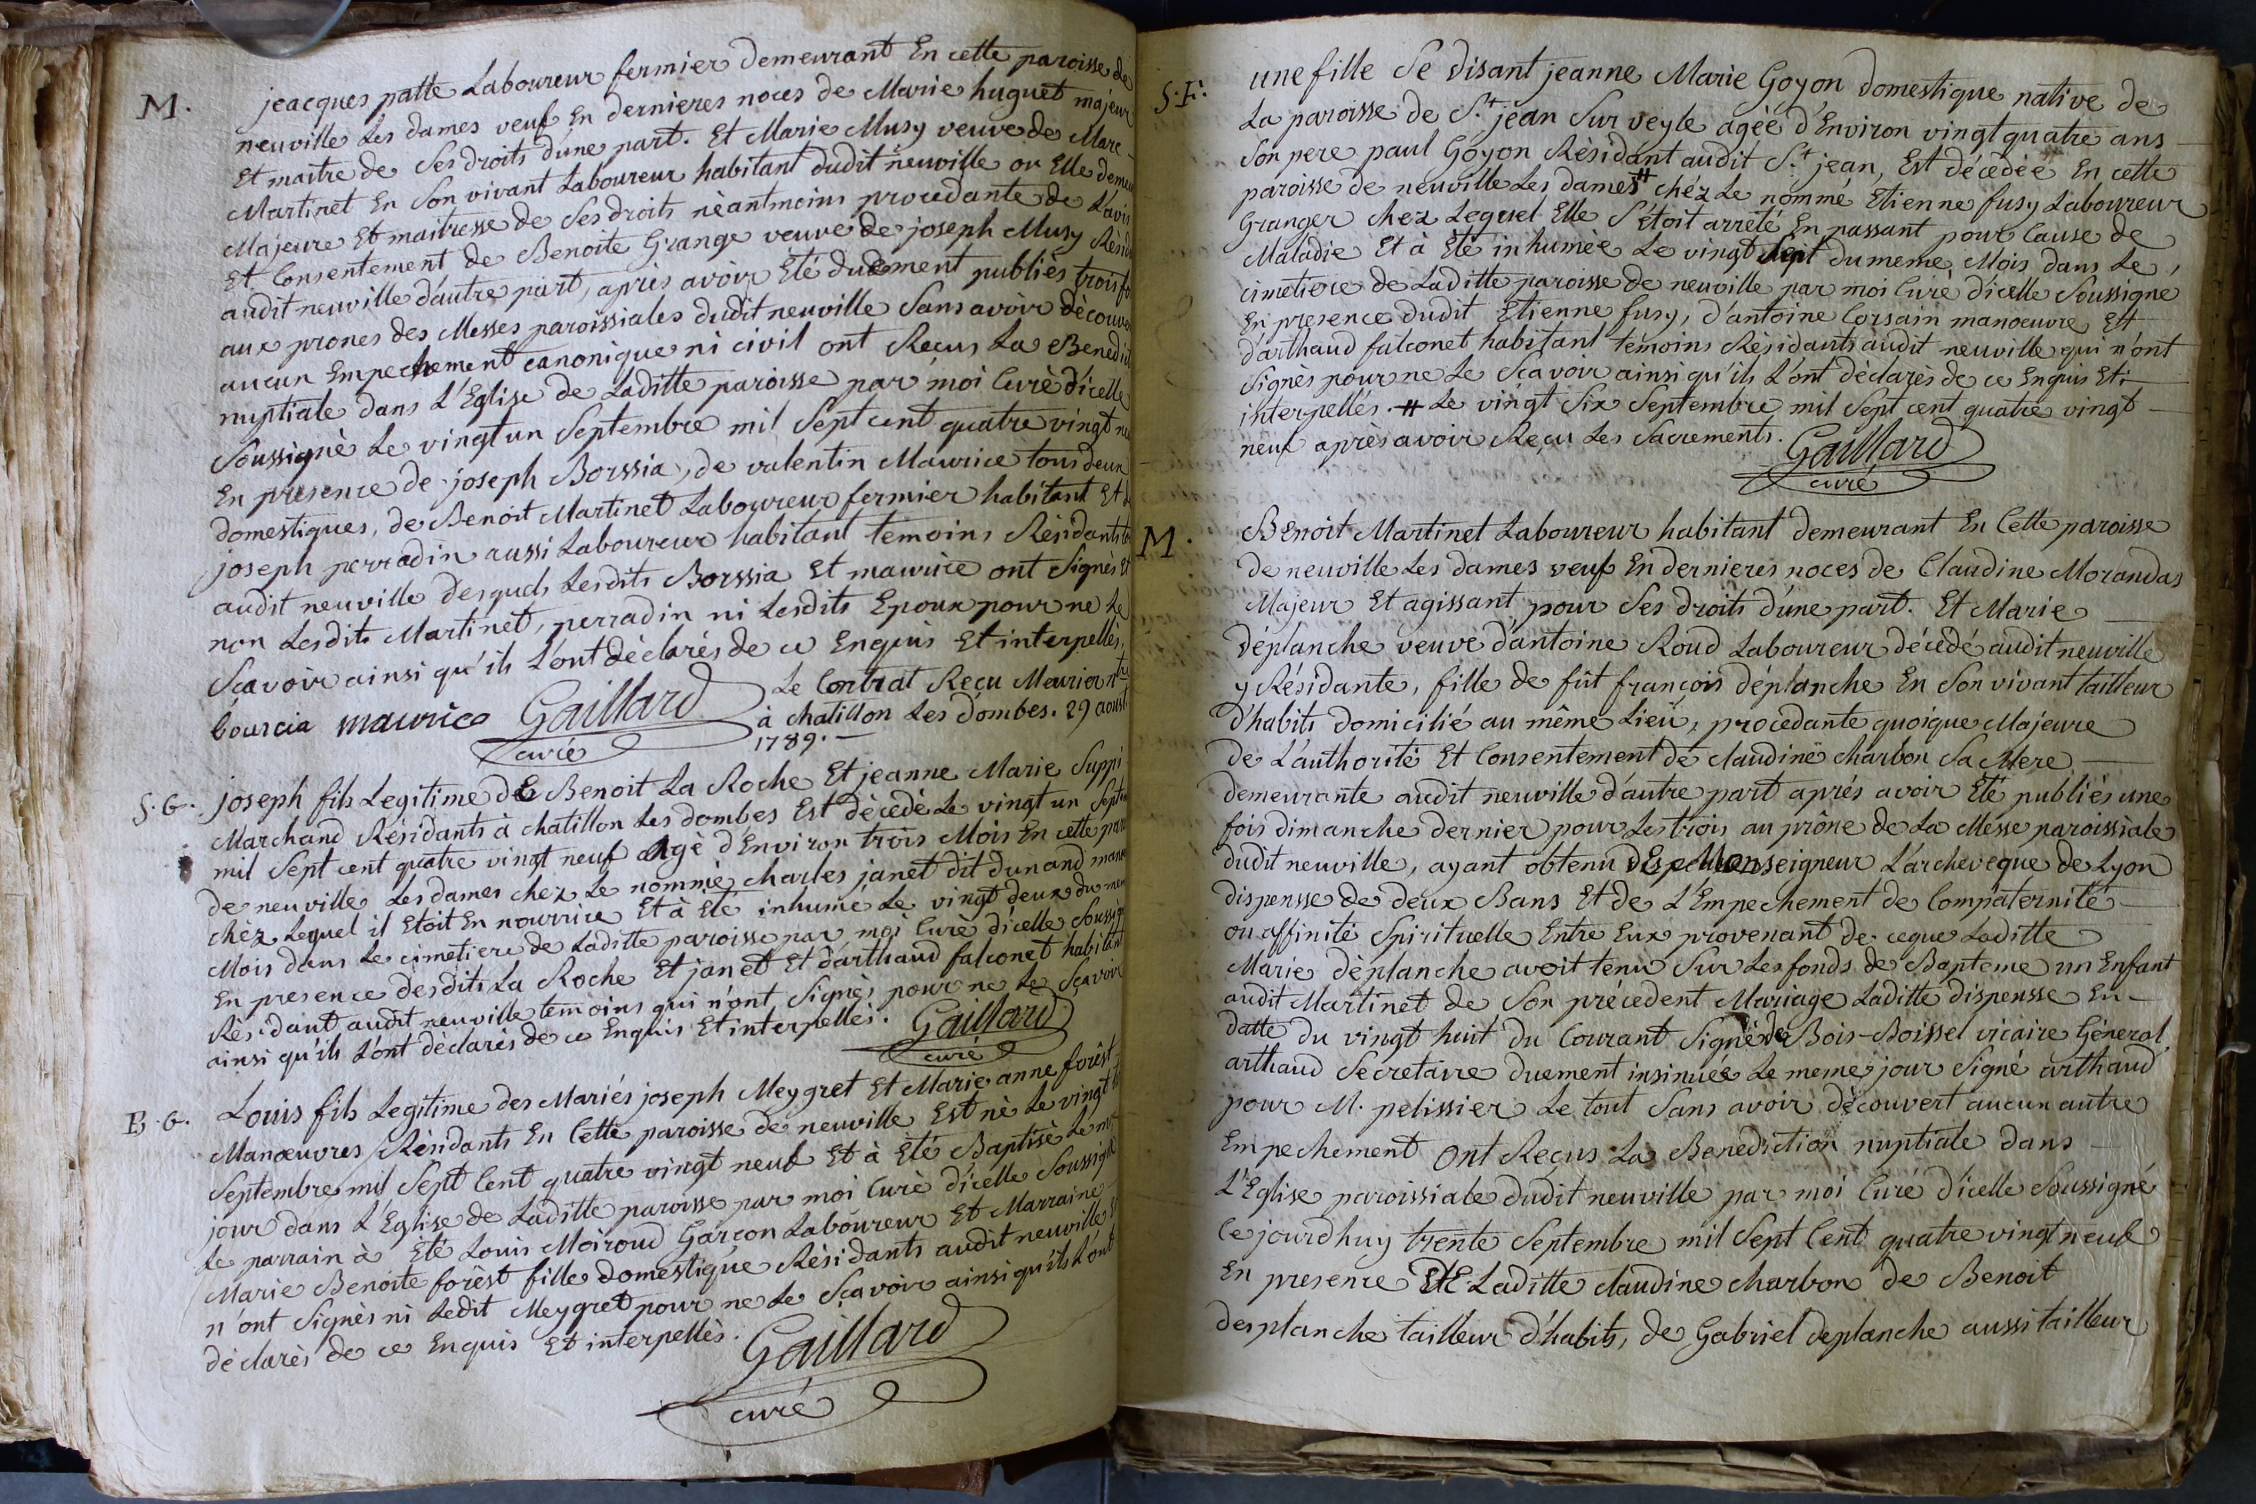 M. jeacques patte Laboureur fermier demeurant En cette paroisse de
neuville Les dames veuf En dernieres noces de Marie huguet majeur
Et maitre de Ses droits d'une part. Et Marie Musy veuve de Marc
Martinet En Son vivant Laboureur habitant dudit neuville ou Elle demeu
Majeure Et maitresse de Ses droits nèantmoins procedante de L'avis
Et Consentement de Benoite Grange veuve de joseph Musy Résid
audit neuville d'autre part, après avoir Eté duement publiès trois fo
aux prones des Messes paroissiales dudit neuville Sans avoir dècouve
aucun Empechement canonique ni civil ont Reçus La Benedic
nuptiale dans L'Eglise de Laditte paroisse par moi Curè d'icelle
Soussignè Le vingt un Septembre mil Sept cent quatre vingt neu
En presence de joseph Borssia, de valentin Maurice tous deux
domestiques, de Benoit Martinet Laboureur fermier habitant Et de
joseph perradin aussi Laboureur habitant temoins Résidants
audit neuville desquels Lesdits Borssia Et maurice ont Signès Et
non Lesdits Martinet, perradin ni Lesdits Epoux pour ne Le
Scavoir ainsi qu'ils L'ont déclarés de ce Enquis Et interpellès,
Le Contrat Reçu Meurier ntre
à chatillon Les dombes. 29 aoust
1789.
bourcia maurice Gaillard
curé
S. G. joseph fils Legitime de Benoit La Roche Et jeanne Marie Suppi
Marchand Résidants à chatillon Les dombes Est dècedè Le vingt un Septem
mil Sept cent quatre vingt neuf agè d'Environ trois Mois En cette paro
de neuville Les dames chez Le nommè charles janet dit dunand mano
chèz Lequel il Etoit En nourrice Et à Eté inhumè Le vingt deux du mem
Mois dans Le cimetiere de Laditte paroisse par moi Curè d'icelle Soussig
En presence desdits La Roche Et janet Et d'arthaud falconet habitant
Résidant audit neuville temoins qui n'ont Signès pour ne Le Scavoir
ainsi qu'ils L'ont dèclarès de ce Enquis Et interpellès. Gaillard
curé
B. G. Louis fils Legitime des Mariés joseph Meygret Et Marie anne forêst
Manœuvres Résidants En Cette paroisse de neuville Est nè Le vingt
Septembre mil Sept Cent quatre vingt neuf Et à Eté Baptisè Le m
jour dans L'Eglise de Laditte paroisse par moi Curè d'icelle Soussignè
Le parrain à Eté Louis Moiroud Garçon Laboureur Et Marraine
Marie Benoite forèst fille domestique Résidants audit neuville
n'ont Signès ni Ledit Meygret pour ne Le Scavoir ainsi qu'ils L'ont
dèclarès de ce Enquis Et interpellès.
Gaillard
curé
S. F. une fille Se disant jeanne Marie Goyon domestique native de
La paroisse de St jean Sur veyle agèe d'Environ vingt quatre ans
Son pere paul Goyon Rèsidant audit St jean, Est dècedèe En cette
paroisse de neuville Les dames # chéz Le nommé Etienne fusy Laboureur
Granger chez Lequel Elle S'étoit arrèté En passant pour Cause de
Maladie Et à Eté inhumèe Le vingt Sept du meme Mois dans Le
cimetiere de Laditte paroisse de neuville par moi Curè d'icelle Soussigne
En presence dudit Etienne fusy, d'antoine Corsain manoeuvre Et
d'arthaud falconet habitant tèmoins Résidants audit neuville qui n'ont
Signès pour ne Le Scavoir ainsi qu'ils L'ont dèclarès de ce Enquis Et
interpellés. # Le vingt Six Septembre mil Sept cent quatre vingt
neuf après avoir Reçu Les Sacrements.
Gaillard
curé
M. Benoit Martinet Laboureur habitant demeurant En Cette paroisse
de neuville Les dames veuf En dernieres noces de Claudine Morandas
Majeur Et agissant pour Ses droits d'une part. Et Marie
dèplanche veuve d'antoine Roud Laboureur décedé audit neuville
y Résidante, fille de fût françois déplanche En Son vivant tailleur
d'habits domicilié au même Lieu, procedante quoique Majeure
de L'authorité Et Consentement de claudine charbon Sa Mere
demeurante audit neuville d'autre part aprés avoir Eté publiés une
fois dimanche dernier pour Les trois au prône de La Messe paroissiale
dudit neuville, ayant obtenu de Monseigneur L'archeveque de Lyon
dispensse de deux Bans Et de L'Empechement de Compaternité
ou affinité Spirituelle Entre Eux provenant de ce que Laditte
Marie dèplanche avoit tenu Sur Les fonds de Bapteme un Enfant
audit Martinet de Son précedent Mariage Laditte dispensse En
datte du vingt huit du Courant Signè de Bois-Boissel vicaire Général
arthaud Secretaire duement insinuée Le meme jour Signé arthaud
pour M. pelissier Le tout Sans avoir dècouvert aucun autre
Empechement Ont Reçus La Benediction nuptiale dans
L'Eglise paroissiale dudit neuville par moi Curé d'icelle Soussigné
Ce jourd'huy trente Septembre mil Sept Cent quatre vingt neuf
En presence de Laditte claudine charbon de Benoit
desplanche tailleur d'habits, de Gabriel deplanche aussi tailleur